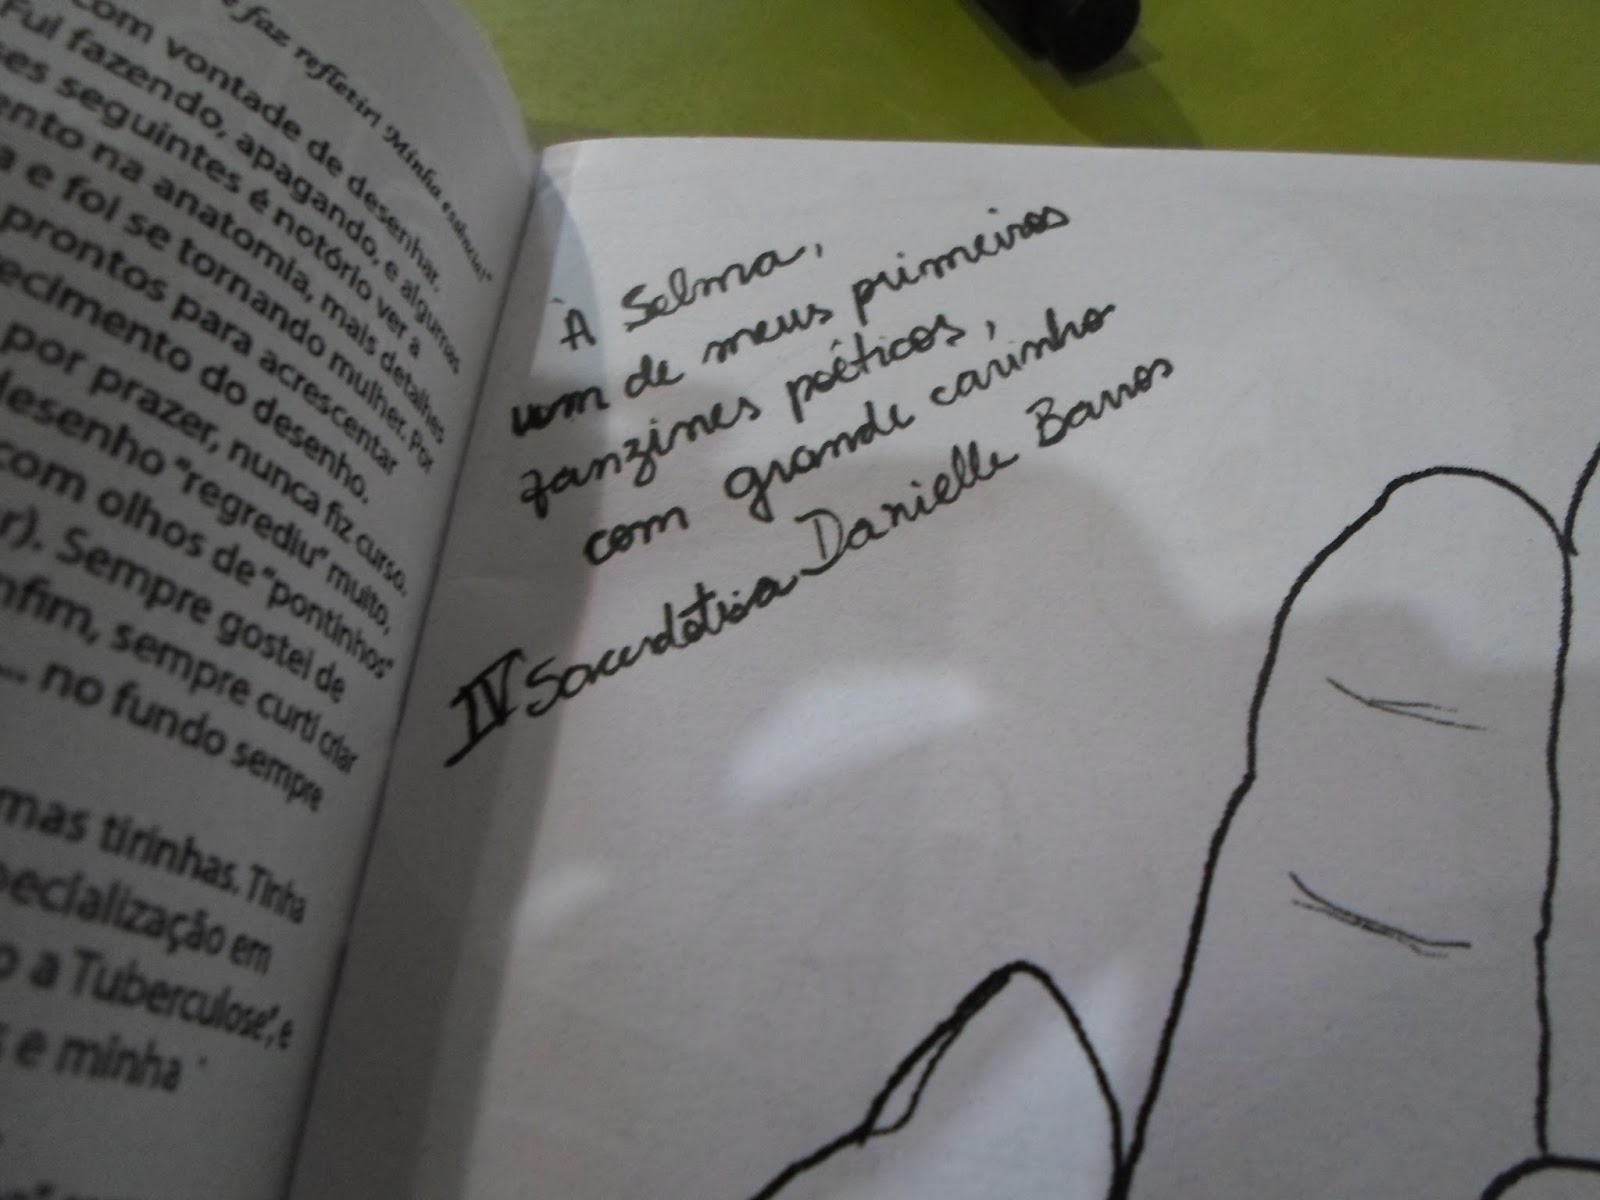 faz refletir! Minha essência!"
com vontade de desenhar.
Fui fazendo, apagando, e algumas
seguintes é notório ver a
na anatomia, mais detalhes
a e foi se tornando mulher. Por
prontos para acrescentar
do desenho.
por prazer, nunca fiz curso.
desenho "regrediu" muito,
com olhos de "pontinhos"
Sempre gostei de
sempre curti criar
... no fundo sempre
tirinhas. Tinha
em
a Tuberculose", e
e minha
À Selma,
um de meus primeiros
fanzines poéticos,
com grande carinho
IV Sacerdotisa Danielle Barros